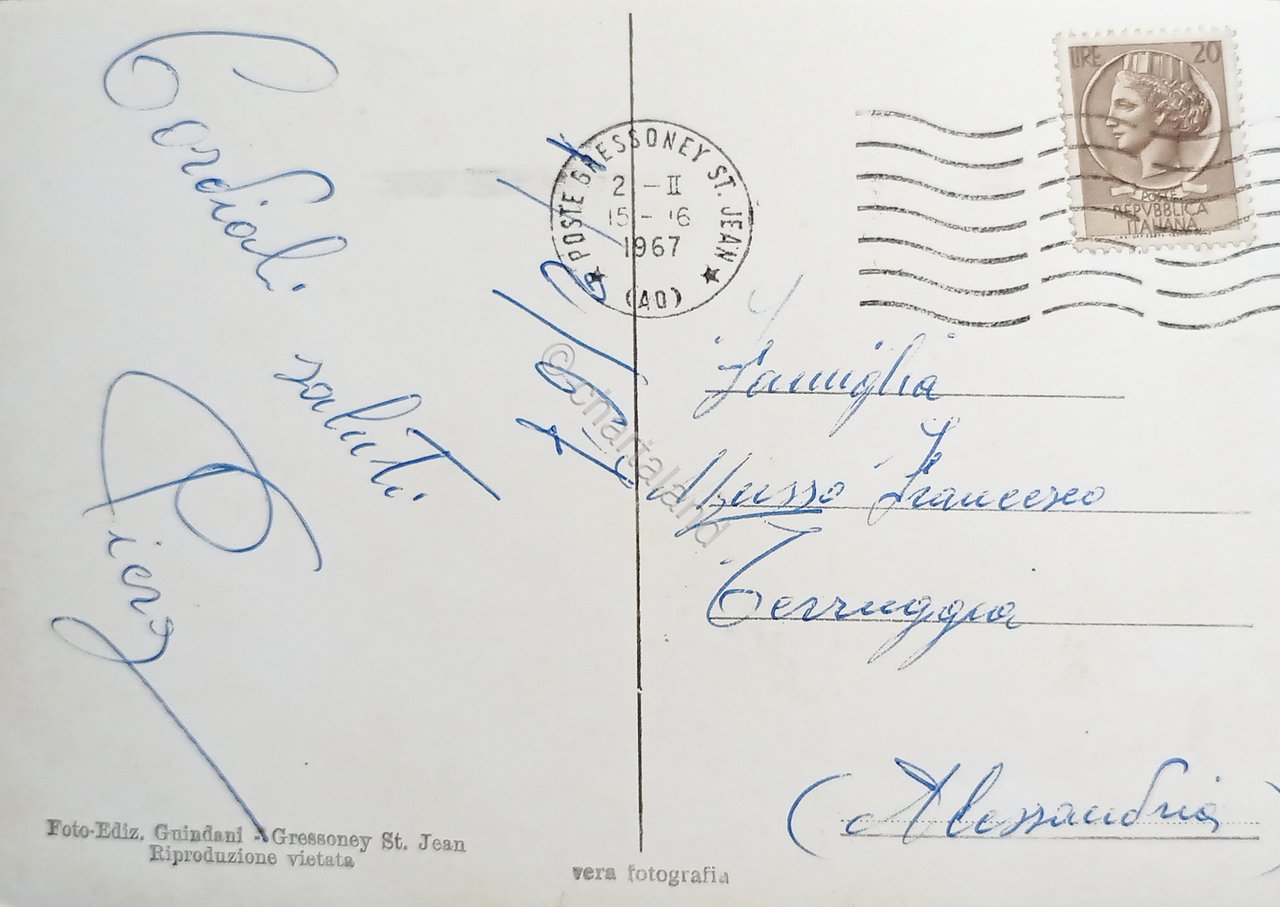 Cordiali
saluti
Piero
Foto-Ediz. Guindani - Gressoney St. Jean
Riproduzione vietata
vera fotografia
POSTE GRESSONEY ST. JEAN
2 - II
15 - 16
1967
(AO)
LIRE 20
POSTE
REPVBBLICA
ITALIANA
Famiglia
Musso Francesco
Terruggia
(Alessandria)
© chartaland